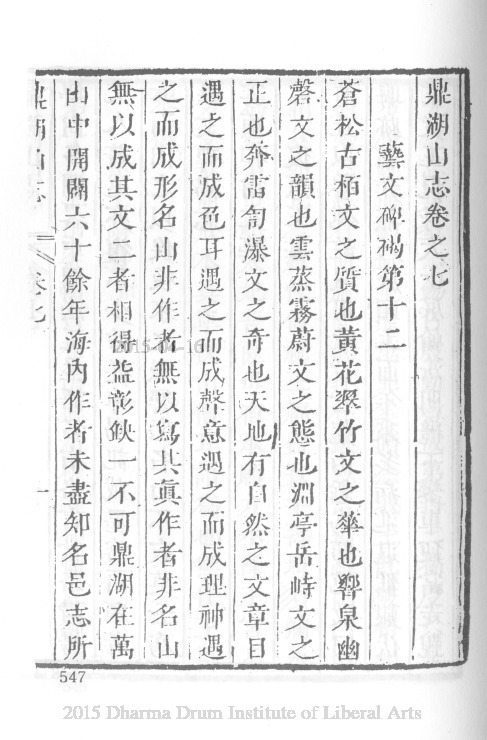 鼎湖山志卷之七
藝文碑碣第十二
蒼松古栢文之質也黃花翠竹文之華也響泉幽
磬文之韻也雲蒸霧蔚文之態也淵亭岳峙文之
正也奔雷訇瀑文之奇也天地有自然之文章目
遇之而成色耳遇之而成聲意遇之而成理神遇
之而成形名山非作者無以寫其眞作者非名山
無以成其文二者相得益彰缺一不可鼎湖在萬
山中開闢六十餘年海內作者未盡知名邑志所
鼎湖山志 卷七 一
547
2015 Dharma Drum Institute of Liberal Arts